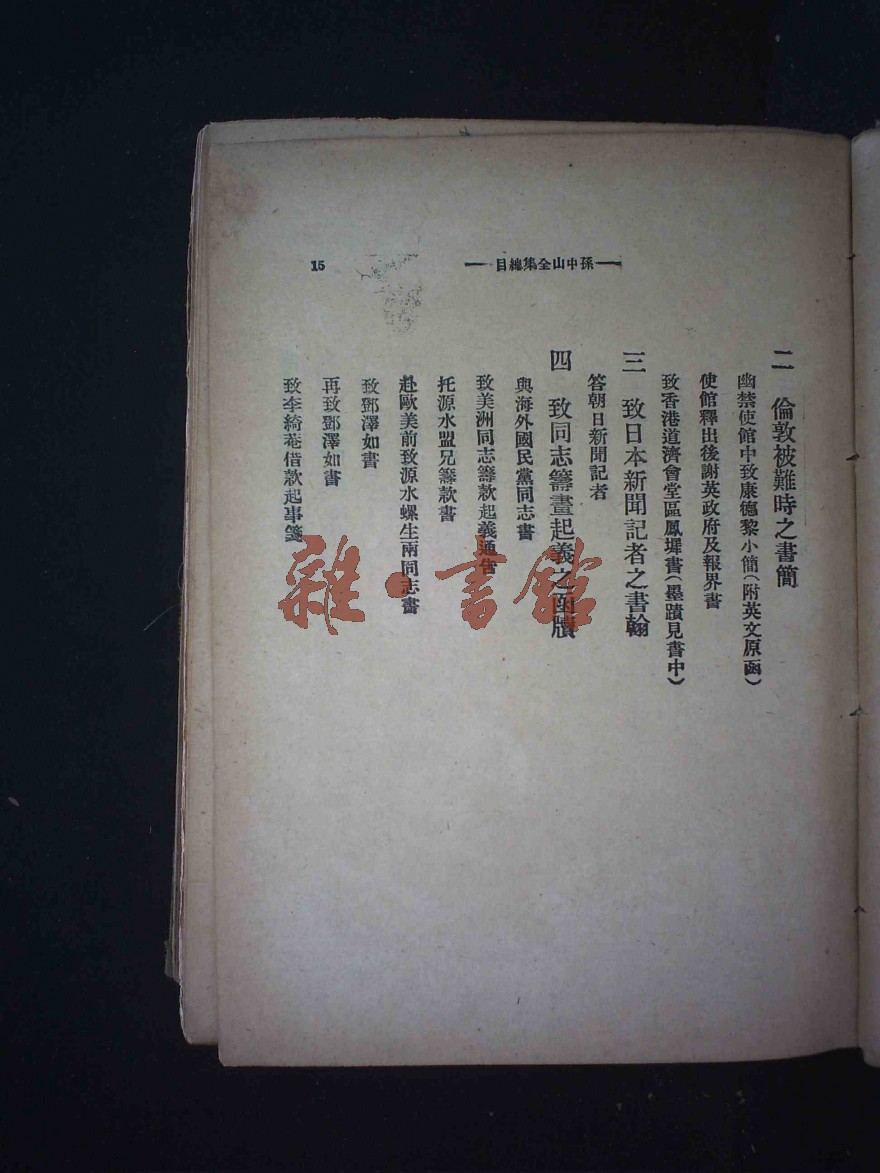 孫中山全集總目
15
二 倫敦被難時之書簡
幽禁使館中致康德黎小簡(附英文原函)
使館釋出後謝英政府及報界書
致香港道濟會堂區鳳墀書(墨蹟見書中)
三 致日本新聞記者之書翰
答朝日新聞記者
四 致同志籌畫起義之函牘
與海外國民黨同志書
致美洲同志籌款起義通告
托源水盟兄籌款書
赴歐美前致源水螺生兩同志書
致鄧澤如書
再致鄧澤如書
致李綺菴借款起事箋
雜·書館